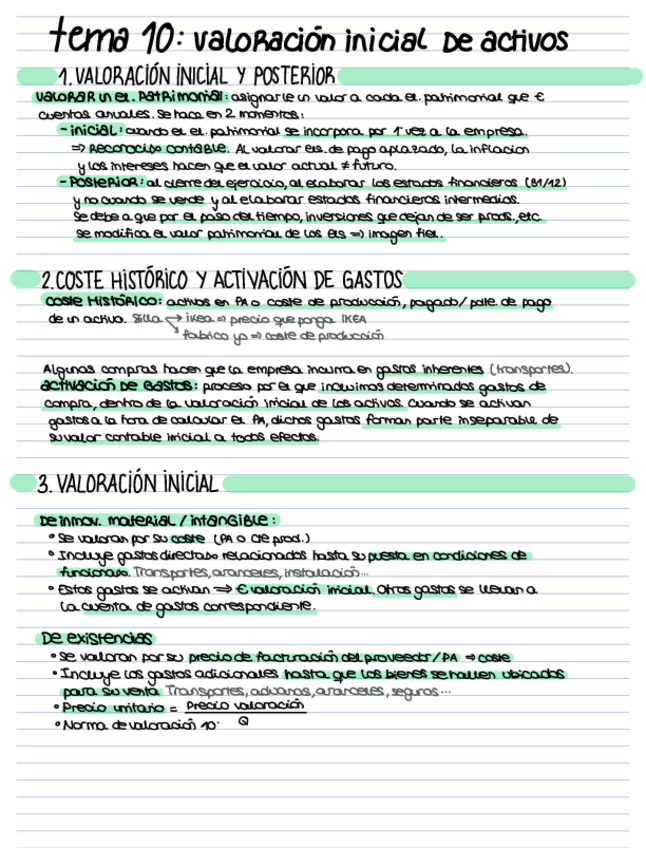 tema 10: valoración inicial de activos
1. VALORACIÓN INICIAL Y POSTERIOR
valorar un el. patrimonial: asignarle un valor a cada el. patrimonial que €
cuentas anuales. Se hace en 2 momentos:
- inicial: cuando el el. patrimonial se incorpora por 1ª vez a la empresa.
⇒ Reconocido contable. Al valorar els. de pago aplazado, la inflación
y los intereses hacen que el valor actual ≠ futuro.
- Posterior: al cierre del ejercicio, al elaborar los estados financieros (31/12)
y no cuando se vende y al elaborar estados financieros intermedios.
Se debe a que por el paso del tiempo, inversiones que dejan de ser prods., etc.
se modifica el valor patrimonial de los els ⇒ imagen fiel.
2. COSTE HISTÓRICO Y ACTIVACIÓN DE GASTOS
coste Histórico: activos en PA o coste de producción, pagado/ pdte. de pago
de un activo. Silla → ikea ⇒ precio que ponga IKEA
fabrico yo ⇒ coste de producción
Algunas compras hacen que la empresa incurra en gastos inherentes (transportes).
activación de Gastos: proceso por el que incluimos determinados gastos de
compra, dentro de la valoración inicial de los activos. Cuando se activan
gastos a la hora de calcular el PA, dichos gastos forman parte inseparable de
su valor contable inicial a todos efectos.
3. VALORACIÓN INICIAL
De inmov. material / intangible:
• Se valoran por su coste (PA o cte prod.)
• Incluye gastos directos relacionados hasta su puesta en condiciones de
funcionamto. Transportes, aranceles, instalación...
• Estos gastos se activan ⇒ € valoración inicial. Otros gastos se llevan a
la cuenta de gastos correspondiente.
De existencias
• Se valoran por su precio de facturación del proveedor / PA ⇒ coste
• Incluye los gastos adicionales hasta que los bienes se hallen ubicados
para su venta Transportes, aduanas, aranceles, seguros...
• Precio unitario = Precio valoración
Q
• Norma de valoración 10ª